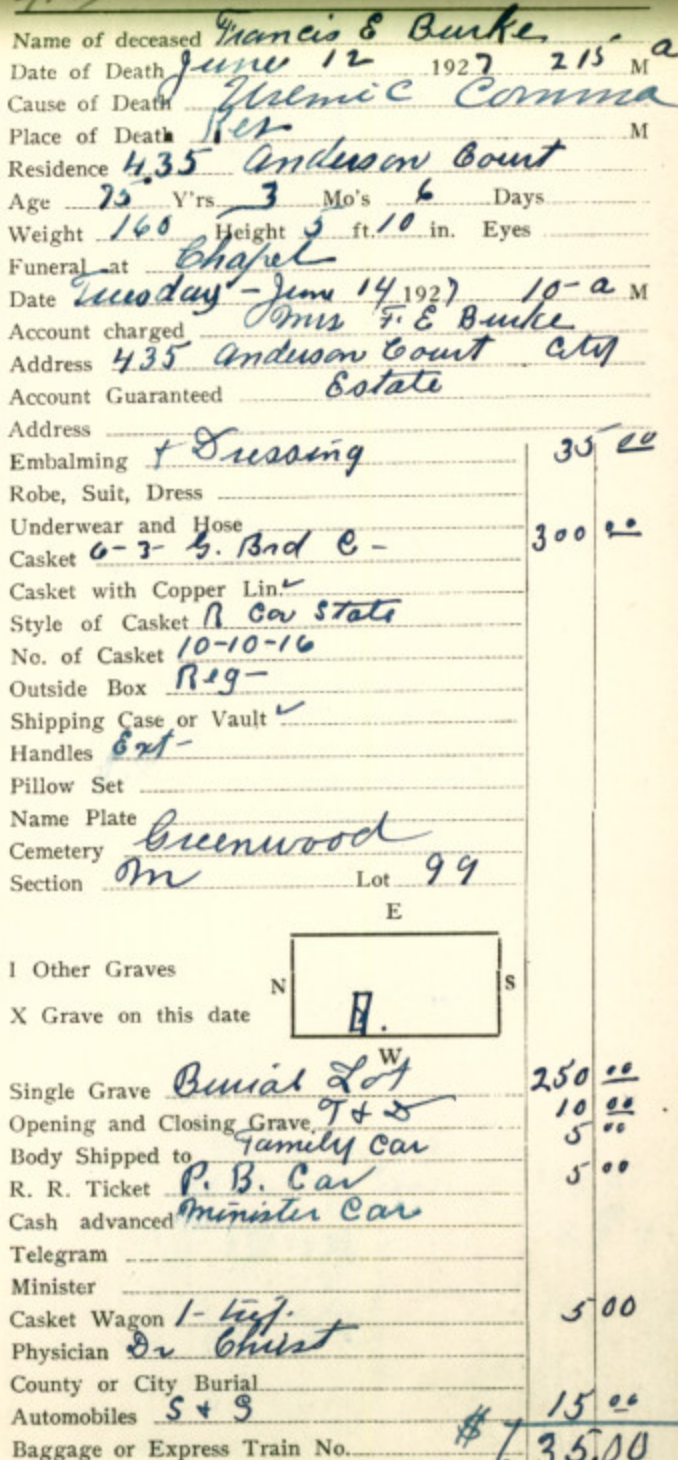 Name of deceased Francis E Burke
Date of Death June 12 1927 215 M a
Cause of Death Uremic Comma
Place of Death Res M
Residence 435 Anderson Court
Age 75 Y'rs 3 Mo's 6 Days
Weight 160 Height 5 ft. 10 in. Eyes
Funeral at Chapel
Date Tuesday - June 14 1927 10-a M
Account charged Mrs F. E Burke
Address 435 Anderson Court City
Account Guaranteed Estate
Address
Embalming + Dressing 35 00
Robe, Suit, Dress
Underwear and Hose
Casket 6-3- G. Brd C - 300 00
Casket with Copper Lin.
Style of Casket Cov State
No. of Casket 10-10-16
Outside Box Reg-
Shipping Case or Vault
Handles Ext-
Pillow Set
Name Plate
Cemetery Greenwood
Section M Lot 99
E
I Other Graves
N S
X Grave on this date
W
Single Grave Burial Lot 250 00
Opening and Closing Grave T & D 10 00
Body Shipped to Family Car 5 00
R. R. Ticket P. B. Car 5 00
Cash advanced Minister Car
Telegram
Minister
Casket Wagon 1- 5 00
Physician Dr Christ
County or City Burial
Automobiles S & S 15 00
Baggage or Express Train No. $ 35.00